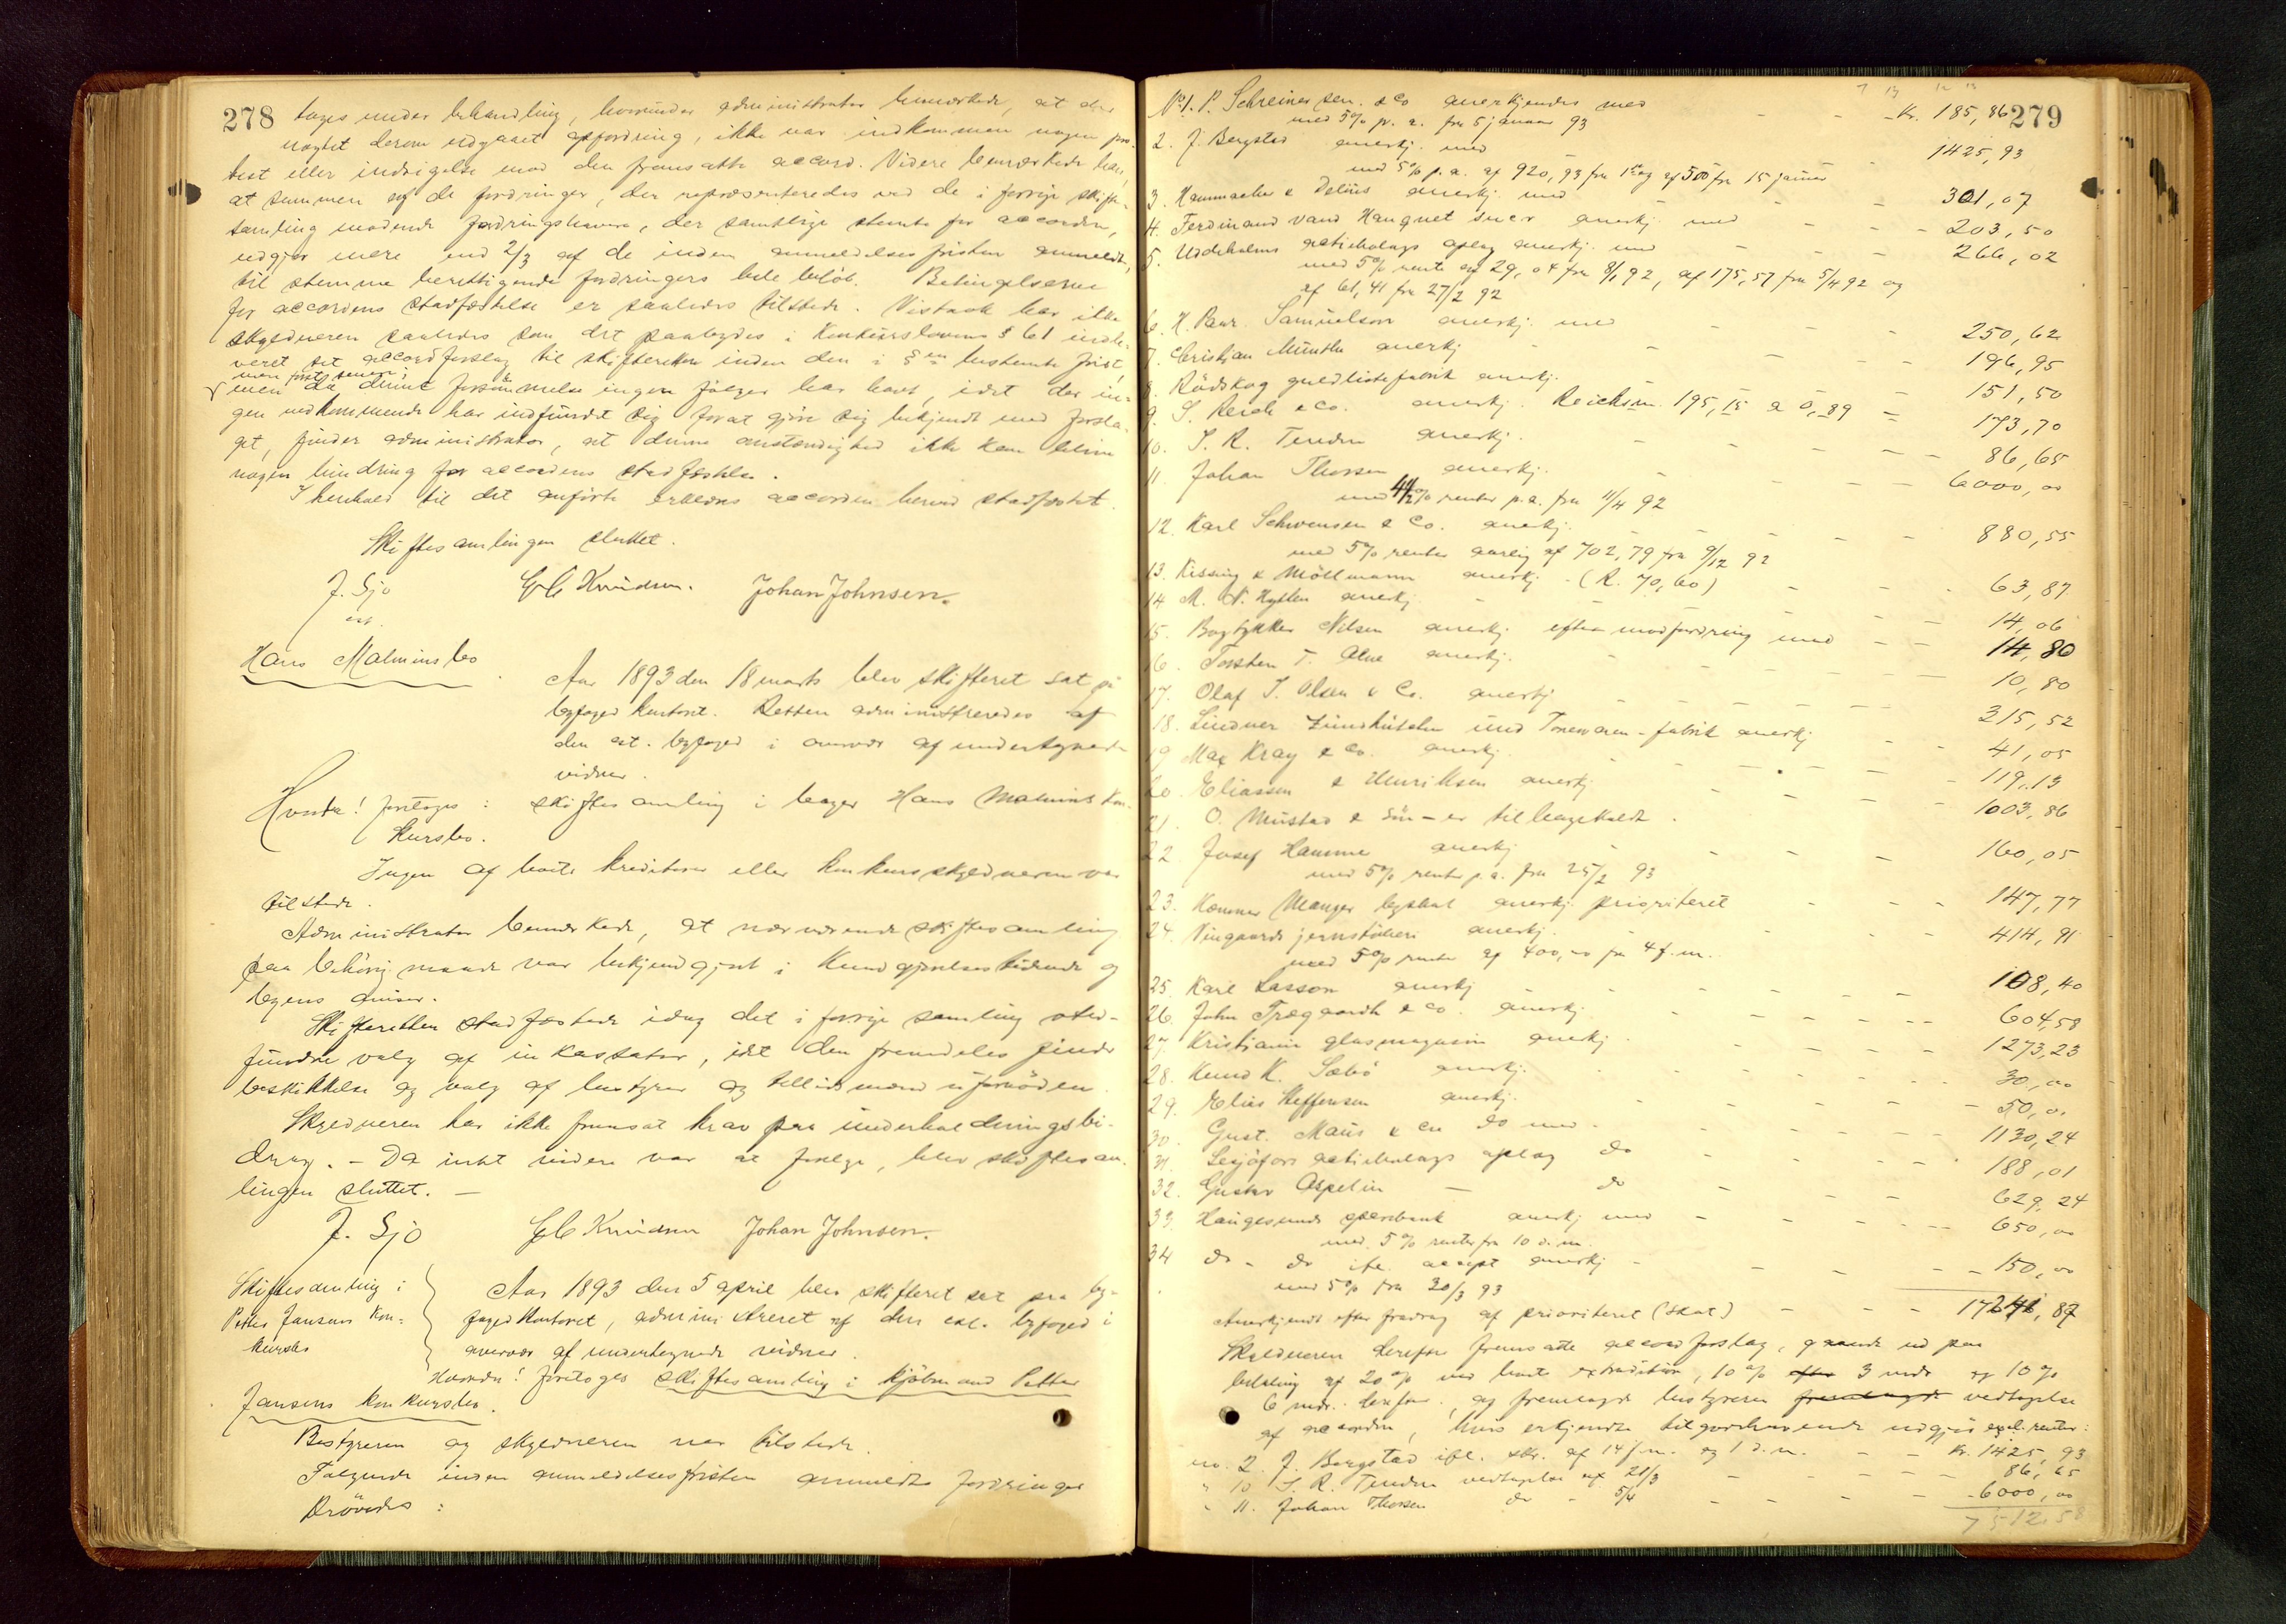 278
tages under behandling, hvorunder administrator bemærkede, at der
uagtet derom udgaaet opfordring, ikke var indkommen nogen pro-
test eller indsigelse mod den fremsatte accord. Videre bemærkede han,
at summen af de fordringer, der repræsenteredes ved de i forrige skifte-
samling mødende fordringshavere, der samtlige stemte for accorden,
udgjør mere end 2/3 af de inden anmeldelsesfristen anmeldte,
til stemme berettigende fordringers hele beløb. Betingelserne
for accordens stadfæstelse er saaledes tilstede. Vistnok har ikke
skyldneren saaledes som det paabydes i Konkurslovens § 61 indle-
veret sit accordforslag til skifteretten inden den i §en bestemte frist,
men først senere;
men da denne forsømmelse ingen følger har havt, idet der in-
gen vedkommende har indfundet sig forat gjøre sig bekjendt med forsla-
get, finder administrator, at denne omstændighed ikke kan blive
nogen hindring for accordens stadfæstelse.
I henhold til det anførte erklæres accorden herved stadfæstet.
Skiftesamlingen sluttet.
J. Sjo Knudsen. Johan Johnsen.
cst.
Hans Malmins bo
Aar 1893 den 18 marts blev skifteret sat på
byfogedkontoret. Retten administreredes af
den cst. byfoged i overvær af undertegnede
vidner.
Hvorda! foretoges: skiftesamling i bager Hans Malmins kon-
kursbo.
Ingen af boets kreditorer eller konkursskyldneren var
tilstede.
Administrator bemærkede, at nærværende skiftesamling
paa behørig maade var bekjendtgjort i Kundgjørelsestidende og
byens aviser.
Skifteretten stadfæstede idag det i forrige samling sted-
fundne valg af inkassator, idet den fremdeles finder
beskikkelse og valg af bestyrer og tillidsmænd ufornøden.
Skyldneren har ikke fremsat krav paa underholdningsbi-
drag. – Da intet videre var at foretage, blev skiftesam-
lingen sluttet. —
J. Sjo Knudsen Johan Johnsen.
Skiftesamling i
Petter Jansens kon-
kursbo
Aar 1893 den 5 april blev skifteret sat paa by-
fogedkontoret, administreret af den cst. byfoged i
overvær af undertegnede vidner.
Hvorda! foretoges skiftesamling i kjøbmand Petter
Jansens konkursbo.
Bestyreren og skyldneren var tilstede.
Følgende inden anmeldelsesfristen anmeldte fordringer
prøvedes:
279
No 1. P. Schreiner sen. & Co anerkjendes med - - Kr. 185,86
med 5% p. a. fra 5 januar 93
2. J. Bergstad anerkj. med 1425,93
med 5% p. a. af 920,93 fra og af 500 fra 15 januar
3. Hammacher & Delius anerkj. med - - 301,07
4. Ferdinand vand Hauquet sucr anerkj. med - - 203,50
5. Uddeholms actiebolags oplag anerkj. med - - 266,02
med 5% rente af 29,04 fra 8/1 92, af 175,57 fra 5/4 92 og
af 61,41 fra 27/2 92
6. H. Samuelson anerkj. med - - 250,62
7. Christian Münthe anerkj. - - 196,95
8. Rödskog guldlistefabrik anerkj. 151,50
9. S. Reich & Co. anerkj. Reichsm. 195,15 a 0,89 = 173,70
10. S. R. Tendra anerkj. - - 86,65
11. Johan Thorsen anerkj. - - 6000,00
med 4 1/2% renter p. a. fra 11/4 92
12. Karl Schwensen & Co. anerkj. - - 880,55
med 5% renter aarlig af 702,79 fra 9/12 92
13. Kissing & Möllmann anerkj. (R. 70,60) - - 63,87
14 M. N. Hytten anerkj. - - 14,06
15. Bogtykker Nilsen anerkj. efter modfordring med - - 14,80
16. Torsten T. anerkj. - - 10,80
17. Olaf T. Olsen & Co. anerkj. - - 315,52
18. Lindner Zündhütchen und Tonwaren-fabrik anerkj. - - 41,05
19 Max Kray & Co. anerkj. - - 119,13
20. Eliassen & Henriksen anerkj. - - 1003,86
21. O. Mustad & Søn - er tilbagekaldt.
22 Josef Hamme anerkj. - - 160,05
med 5% renter p. a. fra 25/2 93
23. Kæmner Manger byskat anerkj. prioriteret - - 147,77
24. Vingaards jernstøberi anerkj. - - 414,91
med 5% rente af 400,00 fra 4 f. m.
25. Karl Lasson anerkj. - - 108,40
26. John Trægaardh & Co. anerkj. - - 604,58
27. Kristiania glasmagasin anerkj. - - 1273,23
28. Knud K. Sæbö anerkj. - - 30,00
29. Elias Steffensen anerkj. - - 50,00
30. Gust. Maus & Co do med - - 1130,24
31. Lesjöfors actiebolags oplag do - - 188,01
32. Gustav Aspelin — do - - 629,24
33. Haugesunds sparebank anerkj. med - - 650,00
med 5% renter fra 10 d. m.
34 do - do ifl. accept anerkj. - - 150,00
med 5% fra 30/3 93
Anerkjendt efter fradrag af prioriteret (skat) - -
Skyldneren derefter fremsatte accordforslag, gaaende ud paa
betaling af 20% ved boets extradition, 10% efter 3 mdr. og 10%
6 mdr. derefter, og fremlagde bestyreren fremlagde vedtagelse
af accorden, hvis erkjendte tilgodehavende udgjør excl. renter:
no. 2. J. Bergstad ifl. skr. af 14 f. m. og 1 d. m. - - Kr. 1425,93
" 10 S. R. Tendra vedtagelse af 21/3 86,65
" 11. Johan Thorsen do - 5/4 - - 6000,00
7512,58